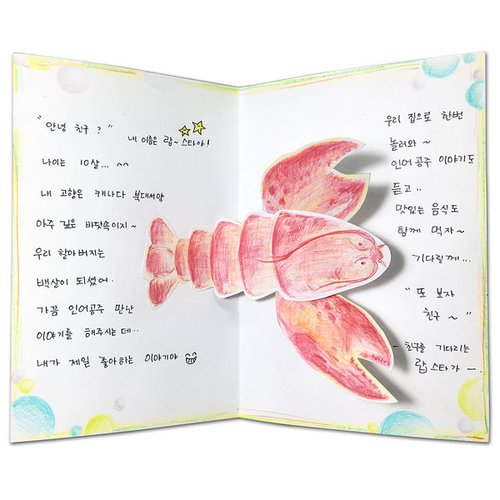 "안녕 친구?"
내 이름은 랍~스타야!
나이는 10살... ^^
내 고향은 캐나다 북대서양
아주 깊은 바닷속이지~
우리 할아버지는
백살이 되셨어.
가끔 인어공주 만난
이야기를 해주시는데..
내가 제일 좋아하는 이야기야
우리 집으로 한번
놀러와~
인어공주 이야기도
듣고..
맛있는 음식도
함께 먹자~
기다릴께...
"또 보자
친구~"
~ 친구를 기다리는
랍스타가 ~.